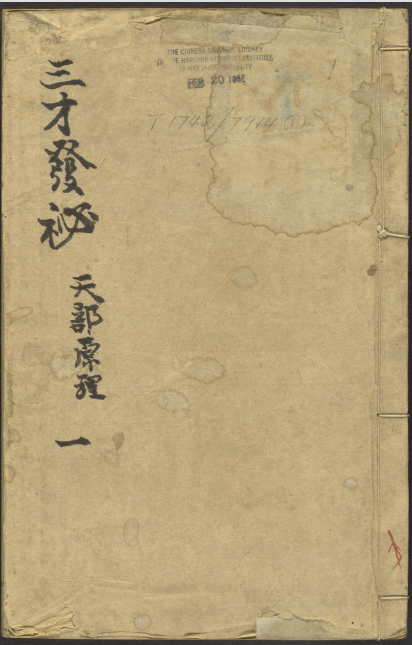 三才發祕
天部原理
一
THE CHINESE-JAPANESE LIBRARY
OF THE HARVARD-YENCHING INSTITUTE
AT HARVARD UNIVERSITY
FEB 20 19
T 1742/7914